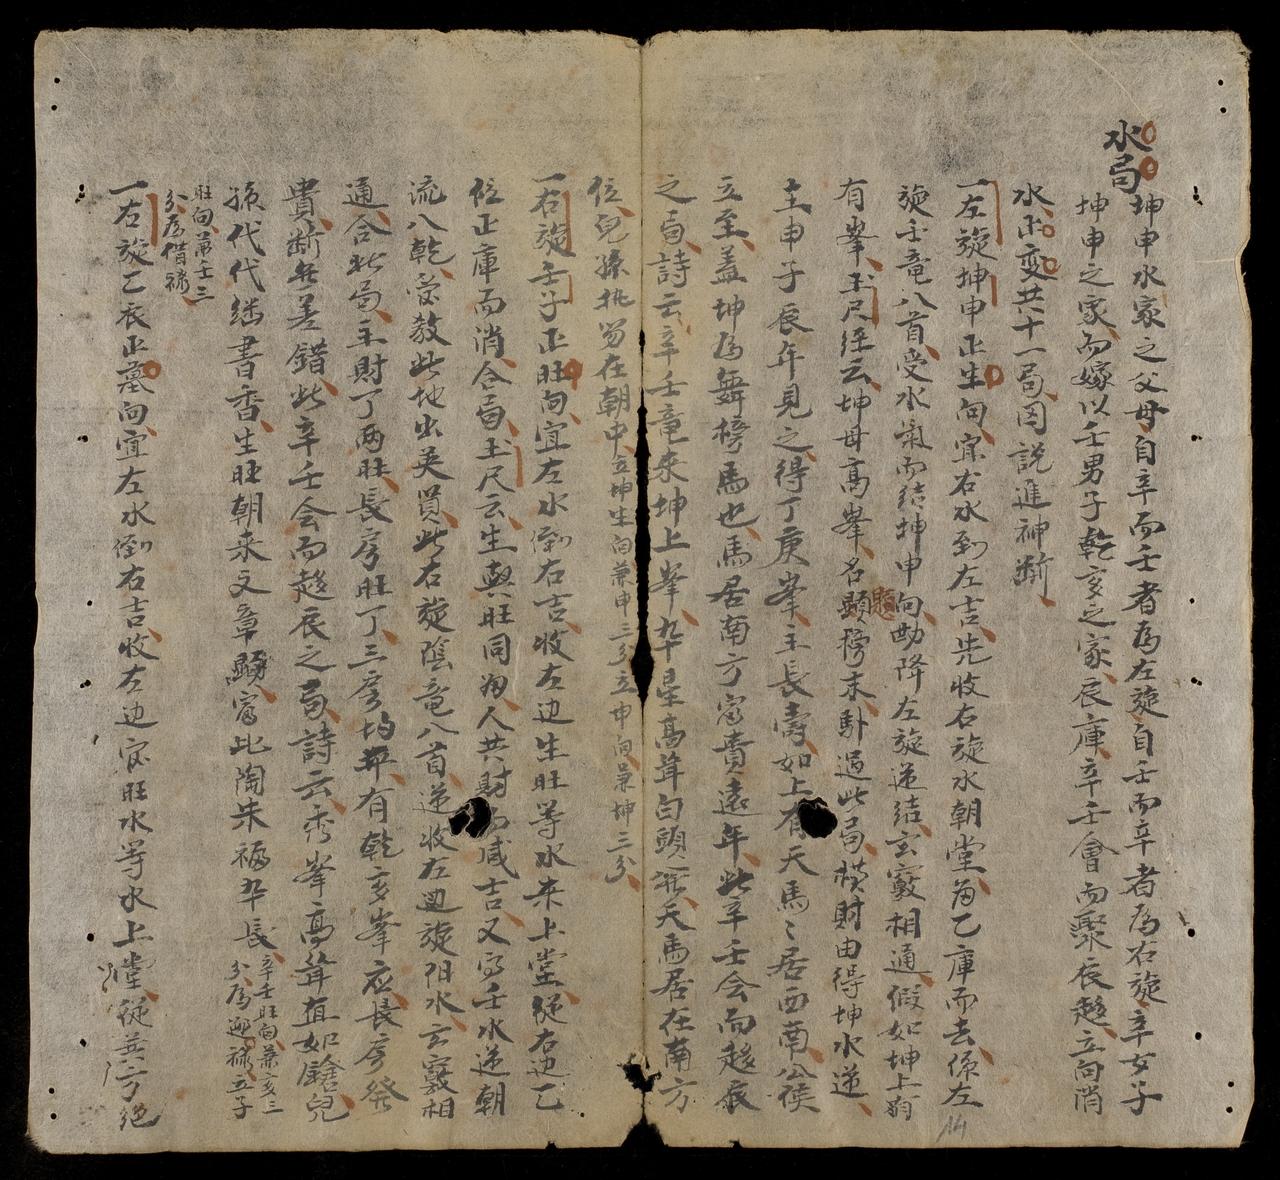 水局
坤申水家之父母自辛而壬者為左旋自壬而辛者為右旋辛女子
坤申之家而嫁以壬男子乾亥之家辰庫辛壬會而聚辰趍立向消
水正变共十一局因說進神断
一左旋坤申正生向宜右水到左吉先收右旋水朝堂為乙庫而去係左
旋壬竜八首受水氣而結坤申向勘降左旋逆結玄竅相通假如坤上有
有峯玉尺経云坤母高峯名顯榜末卧過此局横財由得坤水逆
主申子辰年見之得丁庚峯主長壽如上有天馬〻居西南公侯
立至盖坤為舞榜馬也馬居南方富貴遠年此辛壬会而趍辰
之局詩云辛壬竜来坤上峯九星高聳白頭天馬居在南方
位兒孫執笏在朝中立坤生向兼申三分立申向兼坤三分
一右旋壬子正旺向宜左水倒右吉收左边生旺等水来上堂從右边乙
位正庫而消合局玉尺云生與旺同為人共財而咸吉又宮壬水逆朝
流八乾宮教此地出英員此右旋陰竜八首逆收左边旋阳水玄竅相
通合此局主財丁两旺長房旺丁三房均平有乾亥峯应長房發
貴断無差錯此辛壬会而趍辰之局詩云秀峯高聳直如鎗兒
孫代代継書香生旺朝来文章顯富比陶朱福卆長辛壬旺向兼亥三分為迎禄立子
旺向兼壬三分為借禄
一右旋乙辰正墓向宜左水倒右吉收左边官旺水等水上堂從方絕